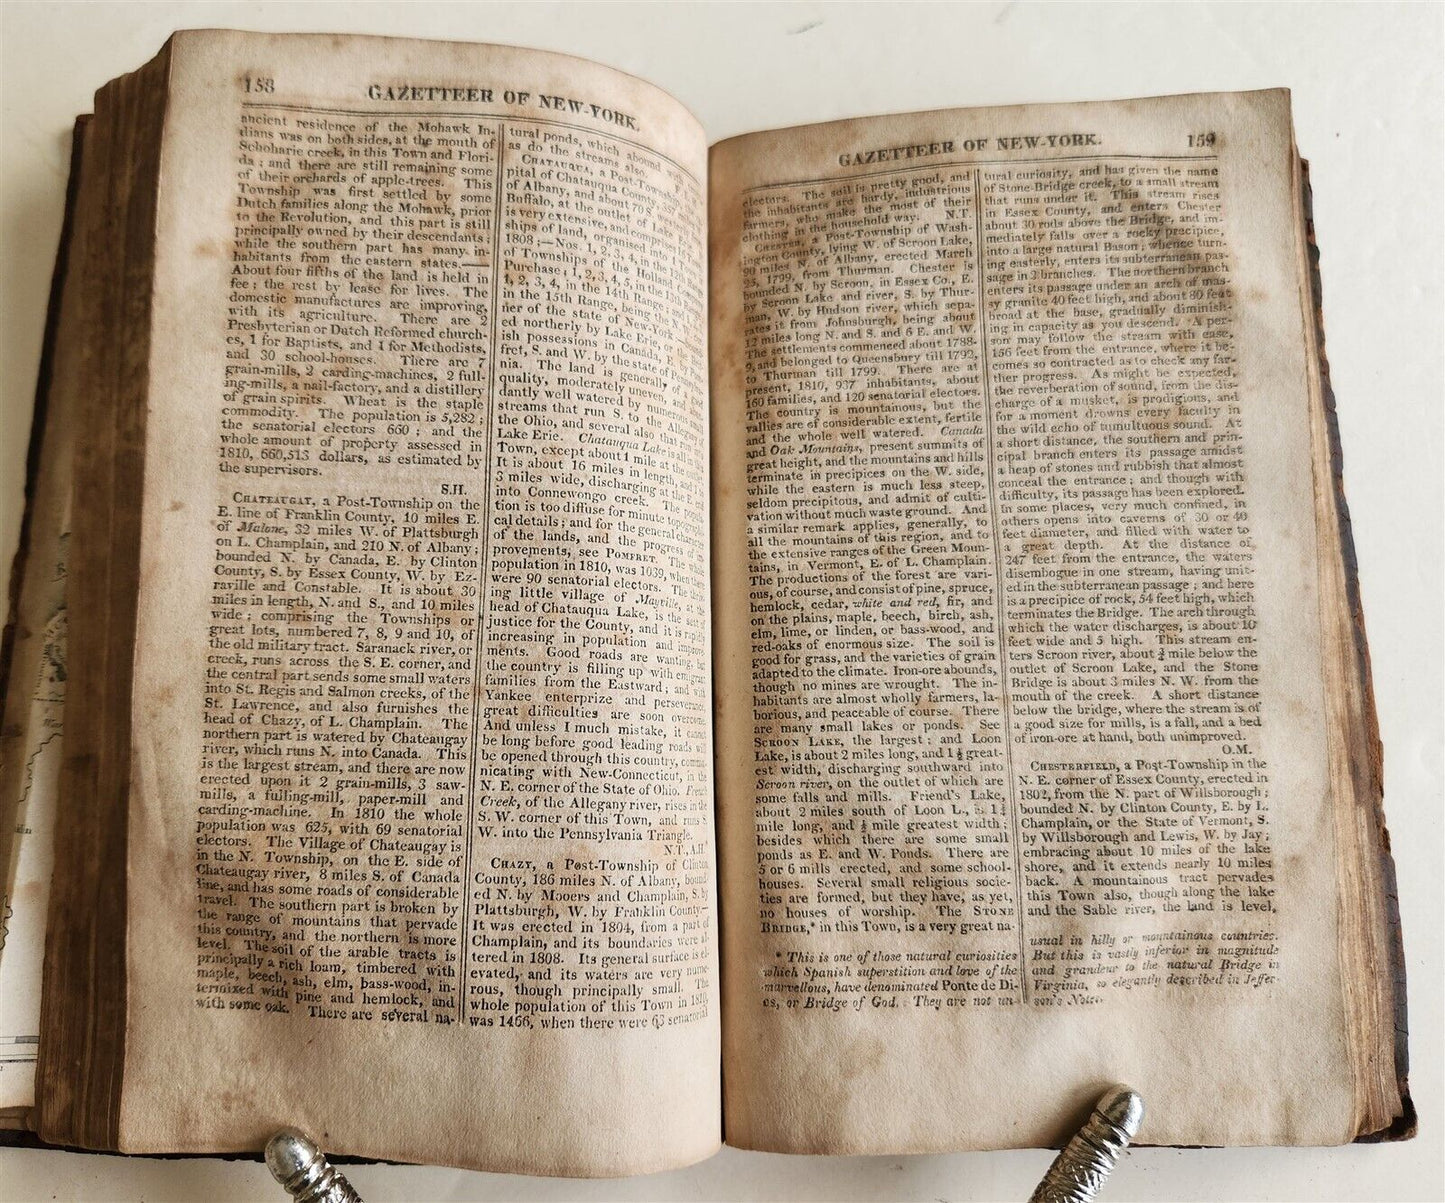 158
GAZETTEER OF NEW-YORK.
ancient residence of the Mohawk In-
dians was on both sides, at the mouth of
Schoharie creek, in this Town and Flori-
da ; and there are still remaining some
of their orchards of apple-trees. This
Township was first settled by some
Dutch families along the Mohawk, prior
to the Revolution, and this part is still
principally owned by their descendants ;
while the southern part has many in-
habitants from the eastern states.——
About four fifths of the land is held in
fee ; the rest by lease for lives. The
domestic manufactures are improving,
with its agriculture. There are 2
Presbyterian or Dutch Reformed church-
es, 1 for Baptists, and 1 for Methodists,
and 30 school-houses. There are 7
grain-mills, 2 carding-machines, 2 full-
ing-mills, a nail-factory, and a distillery
of grain spirits. Wheat is the staple
commodity. The population is 5,282 ;
the senatorial electors 660 ; and the
whole amount of property assessed in
1810, 660,513 dollars, as estimated by
the supervisors.
S.H.
CHATEAUGAY, a Post-Township on the
E. line of Franklin County, 10 miles E.
of Malone, 32 miles W. of Plattsburgh
on L. Champlain, and 210 N. of Albany ;
bounded N. by Canada, E. by Clinton
County, S. by Essex County, W. by Ez-
raville and Constable. It is about 30
miles in length, N. and S., and 10 miles
wide ; comprising the Townships or
great lots, numbered 7, 8, 9 and 10, of
the old military tract. Saranack river, or
creek, runs across the S. E. corner, and
the central part sends some small waters
into St. Regis and Salmon creeks, of the
St. Lawrence, and also furnishes the
head of Chazy, of L. Champlain. The
northern part is watered by Chateaugay
river, which runs N. into Canada. This
is the largest stream, and there are now
erected upon it 2 grain-mills, 3 saw-
mills, a fulling-mill, paper-mill and
carding-machine. In 1810 the whole
population was 625, with 69 senatorial
electors. The Village of Chateaugay is
in the N. Township, on the E. side of
Chateaugay river, 8 miles S. of Canada
line, and has some roads of considerable
travel. The southern part is broken by
the range of mountains that pervade
this country, and the northern is more
level. The soil of the arable tracts is
principally a rich loam, timbered with
maple, beech, ash, elm, bass-wood, in-
termixed with pine and hemlock, and
with some oak. There are several na-
tural ponds, which abound with
as do the streams also.
CHATAUQUA, a Post-Township,
pital of Chatauqua County,
of Albany, and about 70 S.
Buffalo, at the outlet of Lake
is very extensive, and comprises
ships of land, organised into 1
1808 ;—Nos. 1, 2, 3, 4, in the 12th Range
of Townships of the Holland
Purchase ; 1, 2, 3, 4, 5, in the 13th
1, 2, 3, 4, in the 14th Range, and
in the 15th Range, being the N.
ner of the state of New-York.
ed northerly by Lake Erie, or the
ish possessions in Canada, E.
fret, S. and W. by the state of Pennsylva-
nia. The land is generally of good
quality, moderately uneven, and
dantly well watered by numerous small
streams that run S. to the Allegany of
the Ohio, and several also that run into
Lake Erie. Chatauqua Lake is all in this
Town, except about 1 mile at the outlet.
It is about 16 miles in length, and
3 miles wide, discharging at the
into Connewongo creek. The
tion is too diffuse for minute topographi-
cal details ; and for the general character
of the lands, and the progress of im-
provements, see POMFRET. The whole
population in 1810, was 1039, when there
were 90 senatorial electors. The
ing little village of Mayville, at the
head of Chatauqua Lake, is the seat of
justice for the County, and it is rapidly
increasing in population and improve-
ments. Good roads are wanting, but
the country is filling up with emigrant
families from the Eastward ; and with
Yankee enterprize and perseverance,
great difficulties are soon overcome.
And unless I much mistake, it cannot
be long before good leading roads will
be opened through this country, commu-
nicating with New-Connecticut, in the
N. E. corner of the State of Ohio. French
Creek, of the Allegany river, rises in the
S. W. corner of this Town, and runs S.
W. into the Pennsylvania Triangle.
N.T., A.H.
CHAZY, a Post-Township of Clinton
County, 186 miles N. of Albany, bound-
ed N. by Mooers and Champlain, S. by
Plattsburgh, W. by Franklin County.—
It was erected in 1804, from a part of
Champlain, and its boundaries were al-
tered in 1808. Its general surface is el-
evated, and its waters are very nume-
rous, though principally small. The
whole population of this Town in 1810,
was 1466, when there were 63 senatorial
GAZETTEER OF NEW-YORK.
159
electors. The soil is pretty good, and
the inhabitants are hardy, industrious
farmers, who make the most of their
clothing in the household way. N.T.
CHESTER, a Post-Township of Wash-
ington County, lying W. of Scroon Lake,
90 miles N. of Albany, erected March
25, 1799, from Thurman. Chester is
bounded N. by Scroon, in Essex Co., E.
by Scroon Lake and river, S. by Thur-
man, W. by Hudson river, which sepa-
rates it from Johnsburgh, being about
12 miles long N. and S. and 6 E. and W.
The settlements commenced about 1788-
9, and belonged to Queensbury till 1792,
to Thurman till 1799. There are at
present, 1810, 937 inhabitants, about
160 families, and 120 senatorial electors.
The country is mountainous, but the
vallies are of considerable extent, fertile
and the whole well watered. Canada
and Oak Mountains, present summits of
great height, and the mountains and hills
terminate in precipices on the W. side,
while the eastern is much less steep,
seldom precipitous, and admit of culti-
vation without much waste ground. And
a similar remark applies, generally, to
all the mountains of this region, and to
the extensive ranges of the Green Moun-
tains, in Vermont, E. of L. Champlain.
The productions of the forest are vari-
ous, of course, and consist of pine, spruce,
hemlock, cedar, white and red, fir, and
on the plains, maple, beech, birch, ash,
elm, lime, or linden, or bass-wood, and
red-oaks of enormous size. The soil is
good for grass, and the varieties of grain
adapted to the climate. Iron-ore abounds,
though no mines are wrought. The in-
habitants are almost wholly farmers, la-
borious, and peaceable of course. There
are many small lakes or ponds. See
SCROON LAKE, the largest ; and Loon
Lake, is about 2 miles long, and 1½ great-
est width, discharging southward into
Scroon river, on the outlet of which are
some falls and mills. Friend's Lake,
about 2 miles south of Loon L., is 1¼
mile long, and ½ mile greatest width ;
besides which there are some small
ponds as E. and W. Ponds. There are
5 or 6 mills erected, and some school-
houses. Several small religious socie-
ties are formed, but they have, as yet,
no houses of worship. The STONE
BRIDGE,* in this Town, is a very great na-
* This is one of those natural curiosities
which Spanish superstition and love of the
marvellous, have denominated Ponte de Di-
os, or Bridge of God. They are not un-
tural curiosity, and has given the name
of Stone-Bridge creek, to a small stream
that runs under it. This stream rises
in Essex County, and enters Chester
about 30 rods above the Bridge, and im-
mediately falls over a rocky precipice,
into a large natural Bason ; whence turn-
ing easterly, enters its subterranean pas-
sage in 2 branches. The northern branch
enters its passage under an arch of mas-
sy granite 40 feet high, and about 80 feet
broad at the base, gradually diminish-
ing in capacity as you descend. A per-
son may follow the stream with ease,
156 feet from the entrance, where it be-
comes so contracted as to check any far-
ther progress. As might be expected,
the reverberation of sound, from the dis-
charge of a musket, is prodigious, and
for a moment drowns every faculty in
the wild echo of tumultuous sound. At
a short distance, the southern and prin-
cipal branch enters its passage amidst
a heap of stones and rubbish that almost
conceal the entrance ; and though with
difficulty, its passage has been explored.
In some places, very much confined, in
others opens into caverns of 30 or 40
feet diameter, and filled with water to
a great depth. At the distance of
247 feet from the entrance, the waters
disembogue in one stream, having unit-
ed in the subterranean passage ; and here
is a precipice of rock, 54 feet high, which
terminates the Bridge. The arch through
which the water discharges, is about 10
feet wide and 5 high. This stream en-
ters Scroon river, about ¾ mile below the
outlet of Scroon Lake, and the Stone
Bridge is about 3 miles N. W. from the
mouth of the creek. A short distance
below the bridge, where the stream is of
a good size for mills, is a fall, and a bed
of iron-ore at hand, both unimproved.
O.M.
CHESTERFIELD, a Post-Township in the
N. E. corner of Essex County, erected in
1802, from the N. part of Willsborough ;
bounded N. by Clinton County, E. by L.
Champlain, or the State of Vermont, S.
by Willsborough and Lewis, W. by Jay ;
embracing about 10 miles of the lake
shore, and it extends nearly 10 miles
back. A mountainous tract pervades
this Town also, though along the lake
and the Sable river, the land is level,
usual in hilly or mountainous countries.
But this is vastly inferior in magnitude
and grandeur to the natural Bridge in
Virginia, so elegantly described in Jeffer-
son's Notes.